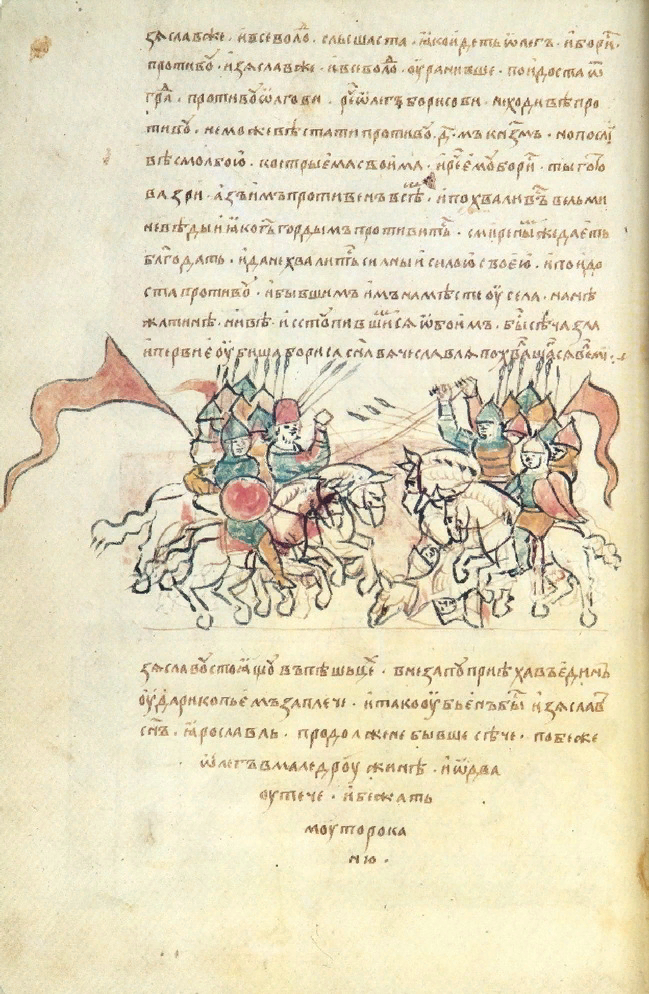 зѧславже · ивсеволо · слышаста · ꙗкоидеть ѡлегъ · ибори
противоу · изѧславже · ивсеволо · оураниvше · поидоста ѿ
гра · противоу ѡлгови · рече ѡлегъ борисови · неходивѣ про
тивоу · неможевѣ стати противоу · д҃ · мъ кнѧземъ · нопосли
вѣ смолбою · кострыема своима · ирече емоу бори · ты гото
ва зри · азъ имъ противенъ всѣ · ипохваливъ вельми
неведыи ꙗко б҃ъ гордымъ противитъ · смиренымжедаеть
блгодать · идане хвалитьсѧ силныи силою своею · ипоидо
ста противоу · ибывшимъ имъ намѣсте оу села · нанѣ
жатинѣ нивѣ · исстоупившимсѧ ѡбоимъ · бы сѣча зла
ипервие оубиша бориса сн҃а вѧчеславлѧ похвалшасѧ велми ·
зѧславоу стоѧщоу въпѣшьцѣ · внезапоу приѣхавъ единъ
оудари копьемъ заплече · итако оубьенъ бы изѧслав
сн҃ъ · ꙗрославль · продолженѣ бывше сѣче · побеже
ѡлегъ вмале дроужинѣ · и ѡдва
оутече · ибежать
моутторока
ню ·